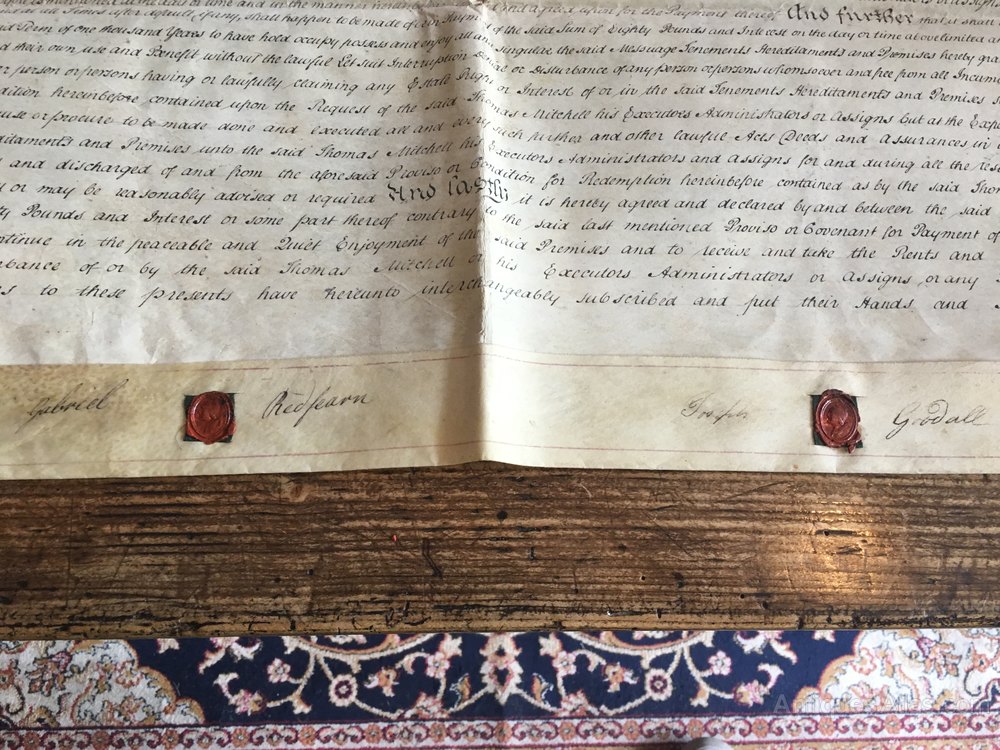 and in the manner
Times after default if any, shall happen to be made of or in Payment and agreed upon for the Payment thereof And further that it shall
Term of one thousand Years to have hold occupy possess and enjoy all and singular the said Messuage Tenements Hereditaments and Premises hereby
their own use and Benefit without the lawful Let Suit Interruption Denial or Disturbance of any person or persons whomsoever and free from all
person or persons having or lawfully claiming any Estate Right or Interest of or in the said Tenements Hereditaments and Premises
hereinbefore contained upon the Request of the said Thomas Mitchell his Executors Administrators or Assigns but at the
or procure to be made done and executed all and every such further and other lawful Acts Deeds and Assurances in
and Premises unto the said Thomas Mitchell his Executors Administrators and assigns for and during all the
and discharged of and from the aforesaid Proviso or Condition for Redemption hereinbefore contained as by the said
or may be reasonably advised or required And lastly it is hereby agreed and declared by and between the said
Pounds and Interest or some part thereof contrary to the said last mentioned Proviso or Covenant for Payment of
in the peaceable and Quiet Enjoyment of the said Premises and to receive and take the Rents and
of or by the said Thomas Mitchell or his Executors Administrators or Assigns, or any
to these presents have hereunto interchangeably subscribed and put their Hands, and
Gabriel Redfearn Joseph Goodall